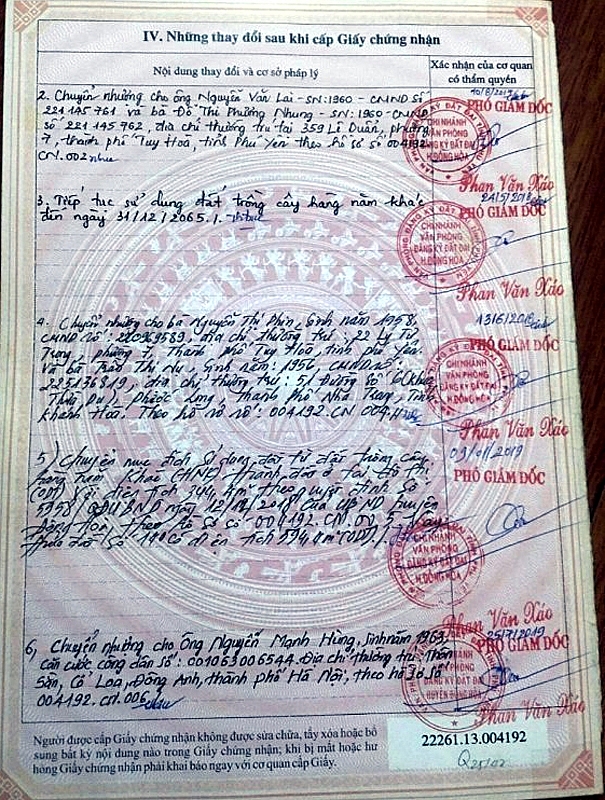 IV. Những thay đổi sau khi cấp Giấy chứng nhận
Nội dung thay đổi và cơ sở pháp lý
Xác nhận của cơ quan
có thẩm quyền
2. Chuyển nhượng cho ông Nguyễn Văn Lai - SN: 1960 - CMND Số
221145761 và bà Đỗ Thị Phương Nhung - SN: 1960 - CMND
số 221145762, địa chỉ thường trú tại 359 Lê Duẩn, phường
7, thành phố Tuy Hoà, tỉnh Phú Yên theo hồ sơ số 004192.
CN.002
10/8/2017
PHÓ GIÁM ĐỐC
CHI NHÁNH
VĂN PHÒNG
ĐĂNG KÝ ĐẤT ĐAI
H.ĐÔNG HÒA
Phan Văn Xáo
3. Tiếp tục sử dụng đất trồng cây hàng năm khác
đến ngày 31/12/2065.
24/5/2018
PHÓ GIÁM ĐỐC
CHI NHÁNH
VĂN PHÒNG
ĐĂNG KÝ ĐẤT ĐAI
H.ĐÔNG HÒA
Phan Văn Xáo
4. Chuyển nhượng cho bà Nguyễn Thị Phin, Sinh năm 1958,
CMND số: 220969589, địa chỉ thường trú: 22 Lý Tự
Trọng, phường 7, Thành phố Tuy Hoà, tỉnh phú yên
Và bà Trần Thị Nụ, sinh năm: 1956, CMND số:
225136819, địa chỉ thường trú: 51 đường số
Phước Long, Thành phố Nha Trang, Tỉnh
Khánh Hoà. Theo hồ sơ số: 004192.CN.004
13/6/2018
PHÓ GIÁM ĐỐC
CHI NHÁNH
VĂN PHÒNG
ĐĂNG KÝ ĐẤT ĐAI
H.ĐÔNG HÒA
Phan Văn Xáo
5) Chuyển mục đích sử dụng đất từ đất trồng cây
hàng năm khác (HNK) thành đất ở tại đô thị
(ODT) với diện tích 344,4m² theo quyết định số
5998/QĐ-UBND ngày 12/12/2018 của UBND huyện
Đông Hòa, theo hồ sơ số: 004192.CN.005,
thửa đất số có diện tích (ODT).
09/01/2019
PHÓ GIÁM ĐỐC
CHI NHÁNH
VĂN PHÒNG
ĐĂNG KÝ ĐẤT ĐAI
H.ĐÔNG HÒA
Phan Văn Xáo
6, Chuyển nhượng cho Ông Nguyễn Mạnh Hùng, sinh năm 1963
căn cước công dân số: 001063006544. Địa chỉ thường trú: Thôn
Sằn, Cổ Loa, Đông Anh, thành phố Hà Nội, theo hồ sơ số
004192.CN.006
25/7/2019
PHÓ GIÁM ĐỐC
CHI NHÁNH
VĂN PHÒNG
ĐĂNG KÝ ĐẤT ĐAI
HUYỆN ĐÔNG HÒA
Phan Văn Xáo
Người được cấp Giấy chứng nhận không được sửa chữa, tẩy xóa hoặc bổ
sung bất kỳ nội dung nào trong Giấy chứng nhận; khi bị mất hoặc hư
hỏng Giấy chứng nhận phải khai báo ngay với cơ quan cấp Giấy.
22261.13.004192